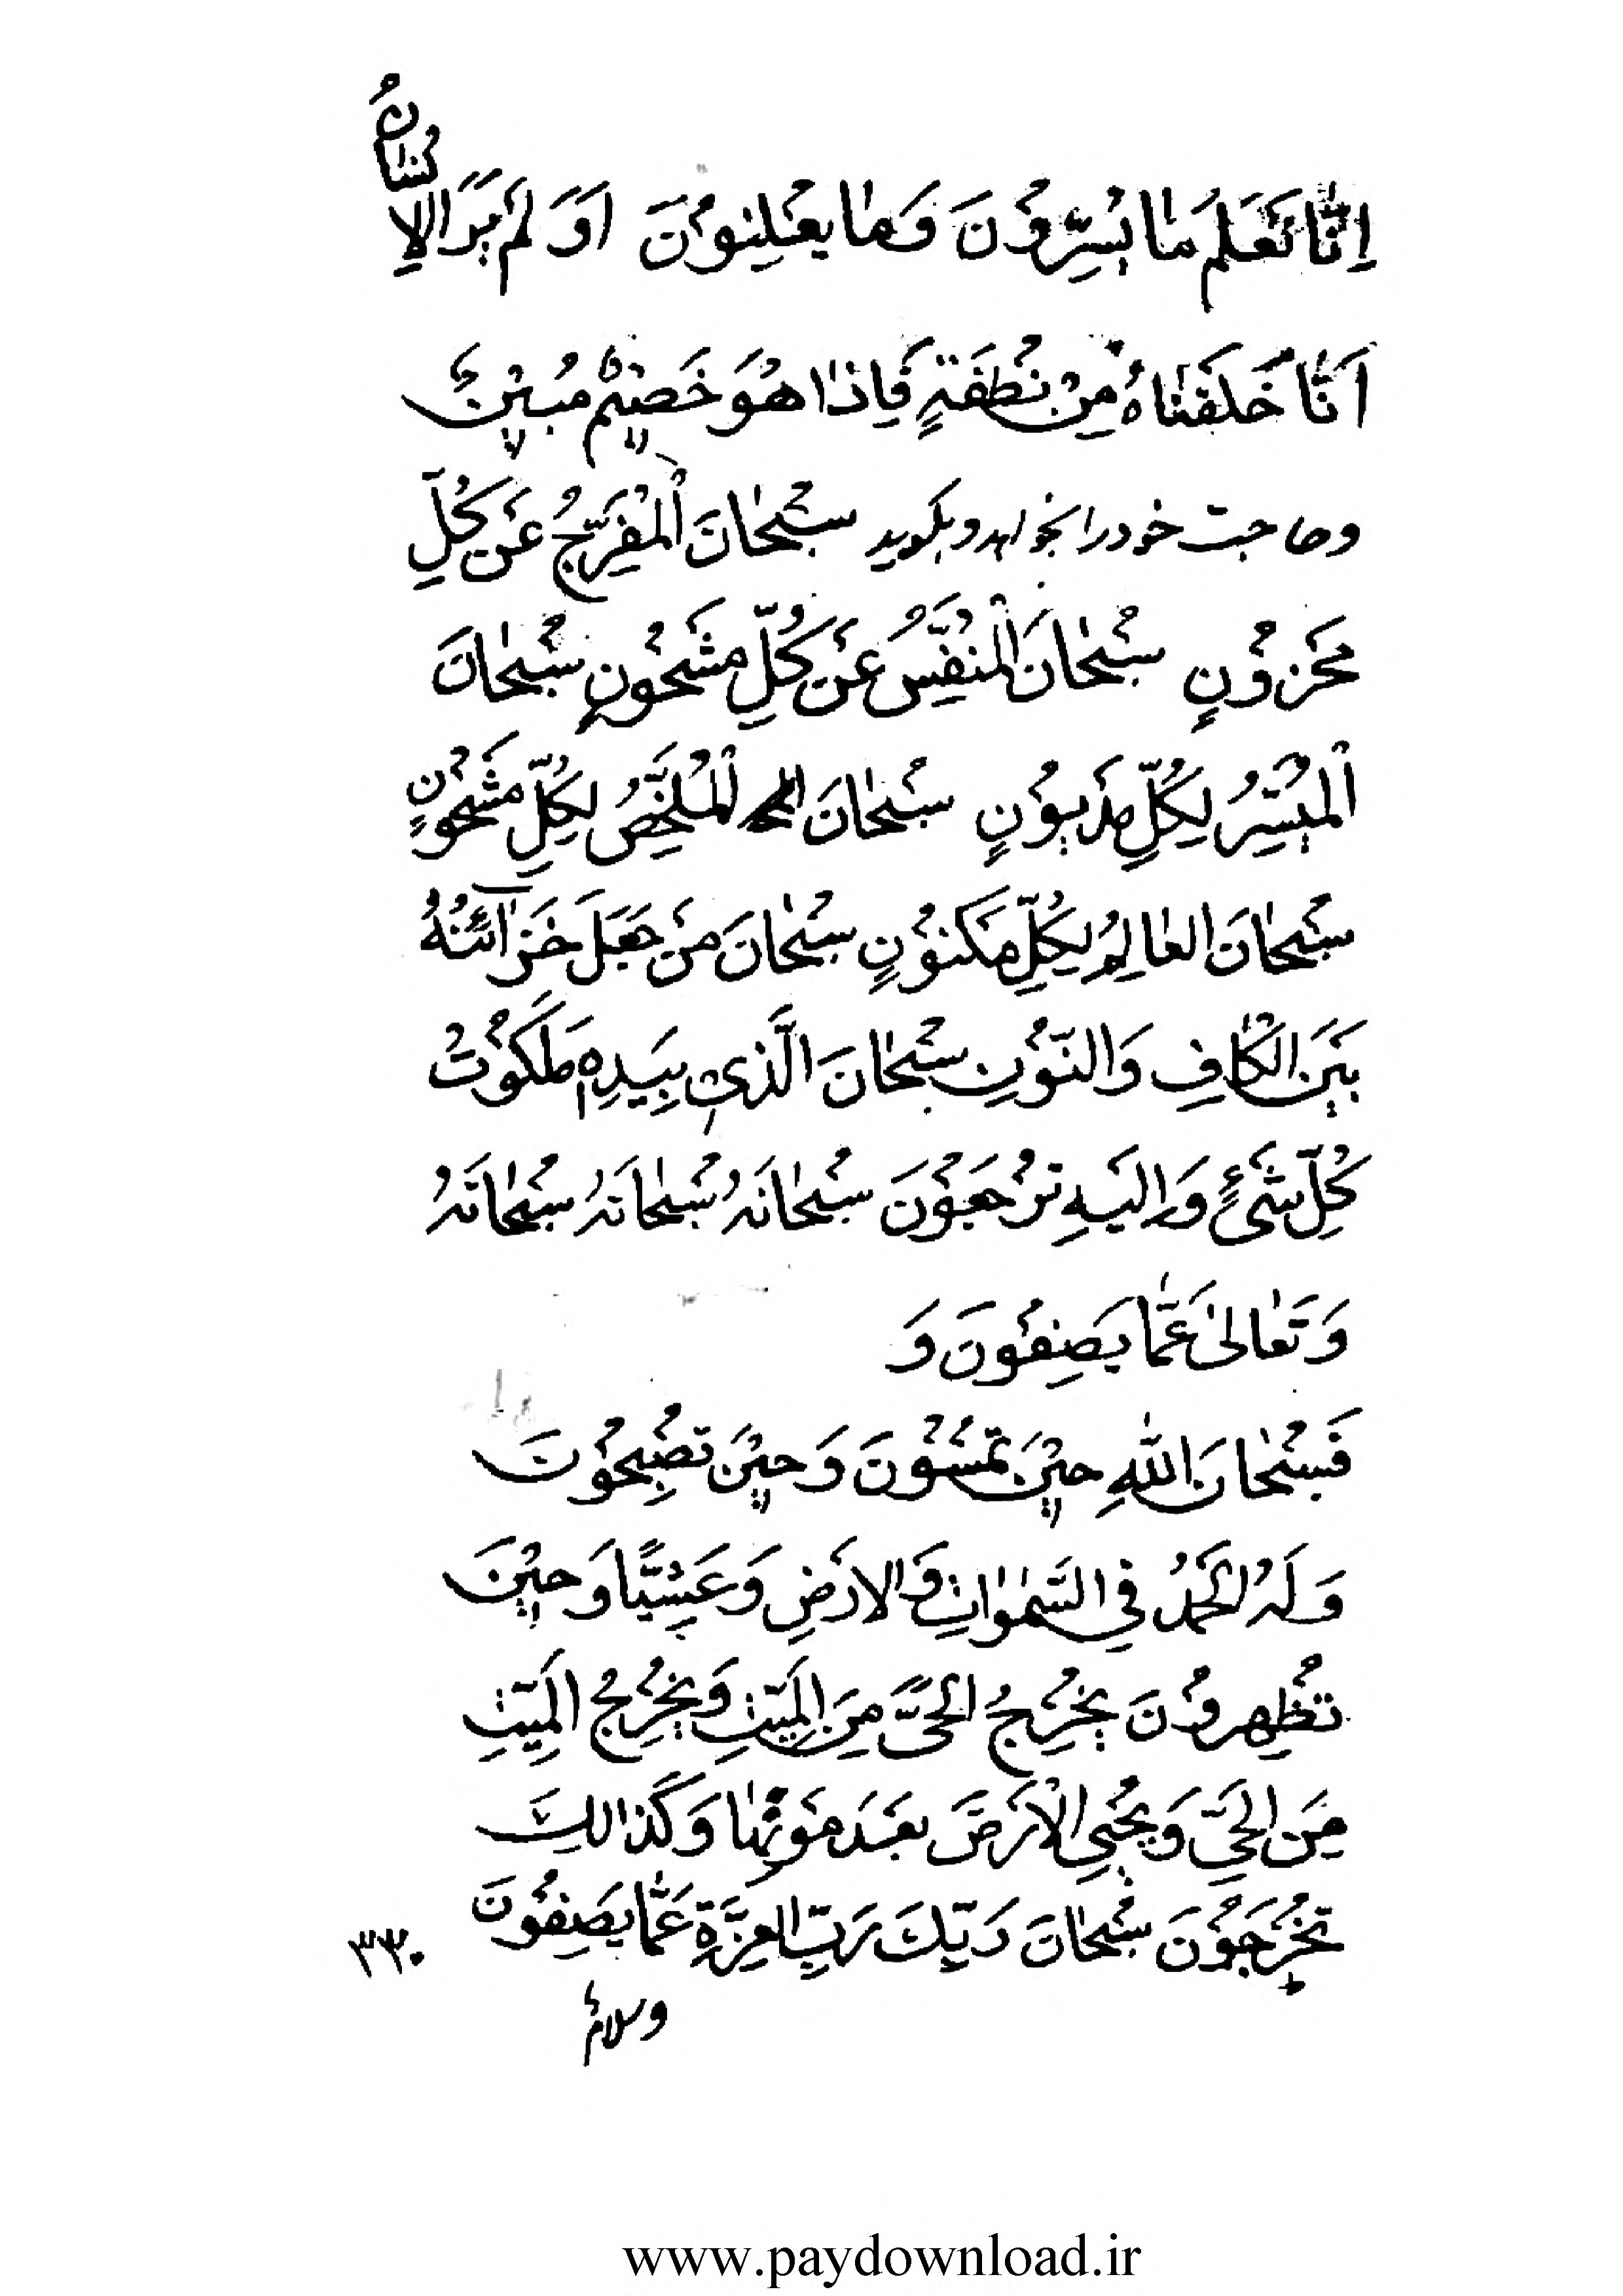 اِنّٰا نَعْلَمُ مٰا يُسِرُّوْنَ وَمٰا يُعْلِنُوْنَ اَوَ لَمْ يَرَ الْاِنْسٰانُ
اَنّٰا خَلَقْنٰاهُ مِنْ نُطْفَةٍ فَاِذٰا هُوَ خَصٖيْمٌ مُبٖيْنٌ
وحاجت خود را بخواهد و بگوید سُبْحٰانَ الْمُفَرِّجُ عَنْ كُلِّ
مَحْزُوْنٍ سُبْحٰانَ الْمُنَفِّسُ عَنْ كُلِّ مَشْحُوْنٍ سُبْحٰانَ
الْمُيَسِّرُ لِكُلِّ مَدْيُوْنٍ سُبْحٰانَ الْمُلَخِّصُ لِكُلِّ مَشْحُوْنٍ
سُبْحٰانَ الْعٰالِمُ لِكُلِّ مَكْنُوْنٍ سُبْحٰانَ مَنْ جَعَلَ خَزٰآئِنُهُ
بَيْنَ الْكٰافِ وَالنُّوْنِ سُبْحٰانَ الَّذٖى بِيَدِهٖ مَلَكُوْتُ
كُلِّ شَىْءٍ وَاِلَيْهِ تُرْجَعُوْنَ سُبْحٰانَهُ سُبْحٰانَهُ سُبْحٰانَهُ
وَ تَعٰالىٰ عَمّٰا يَصِفُوْنَ وَ
فَسُبْحٰانَ اللّٰهِ حٖيْنَ تُمْسُوْنَ وَ حٖيْنَ تُصْبِحُوْنَ
وَ لَهُ الْحَمْدُ فِى السَّمٰوٰاتِ وَالْاَرْضِ وَ عَشِيًّا وَ حٖيْنَ
تُظْهِرُوْنَ يُخْرِجُ الْحَىَّ مِنَ الْمَيِّتِ وَ يُخْرِجُ الْمَيِّتِ
مِنَ الْحَىِّ وَ يُحْيِى الْاَرْضَ بَعْدَ مَوْتِهٰا وَ كَذٰالِكَ
تُخْرَجُوْنَ سُبْحٰانَ رَبِّكَ رَبِّ الْعِزَّةِ عَمّٰا يَصِفُوْنَ
وسلامٌ
٣٣٠
www.paydownload.ir